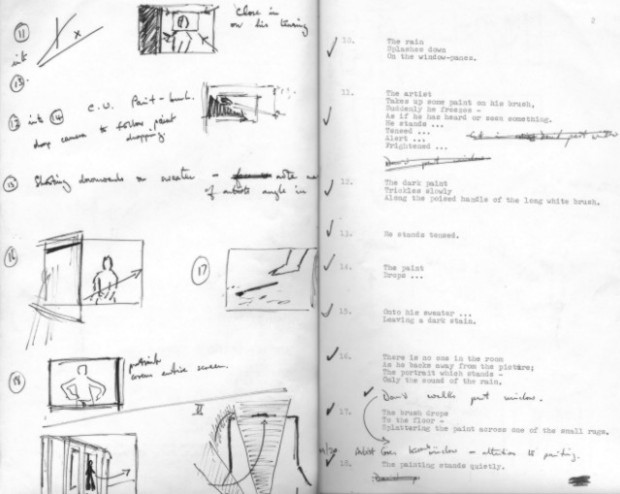 11
Close in
on his turning
into
12.
C.U. Paint-brush.
13 into 14
drop camera to follow paint
dropping
15 Shooting downwards on sweater — note
of artists angle in
16
17
18
portrait
covers entire screen.
2
10. The rain
Splashes down
On the window-panes.
11. The artist
Takes up some paint on his brush,
Suddenly he freezes -
As if he has heard or seen something.
He stands ...
Tensed ...
Alert ...
Frightened ...
12. The dark paint
Trickles slowly
Along the poised handle of the long white brush.
13. He stands tensed.
14. The paint
Drops ...
15. Onto his sweater ...
Leaving a dark stain.
16. There is no one in the room
As he backs away from the picture;
The portrait which stands -
Only the sound of the rain.
Don't walk past window.
17. The brush drops
To the floor -
Splattering the paint across one of the small rugs.
Artist goes window - attention to painting.
18. The painting stands quietly.